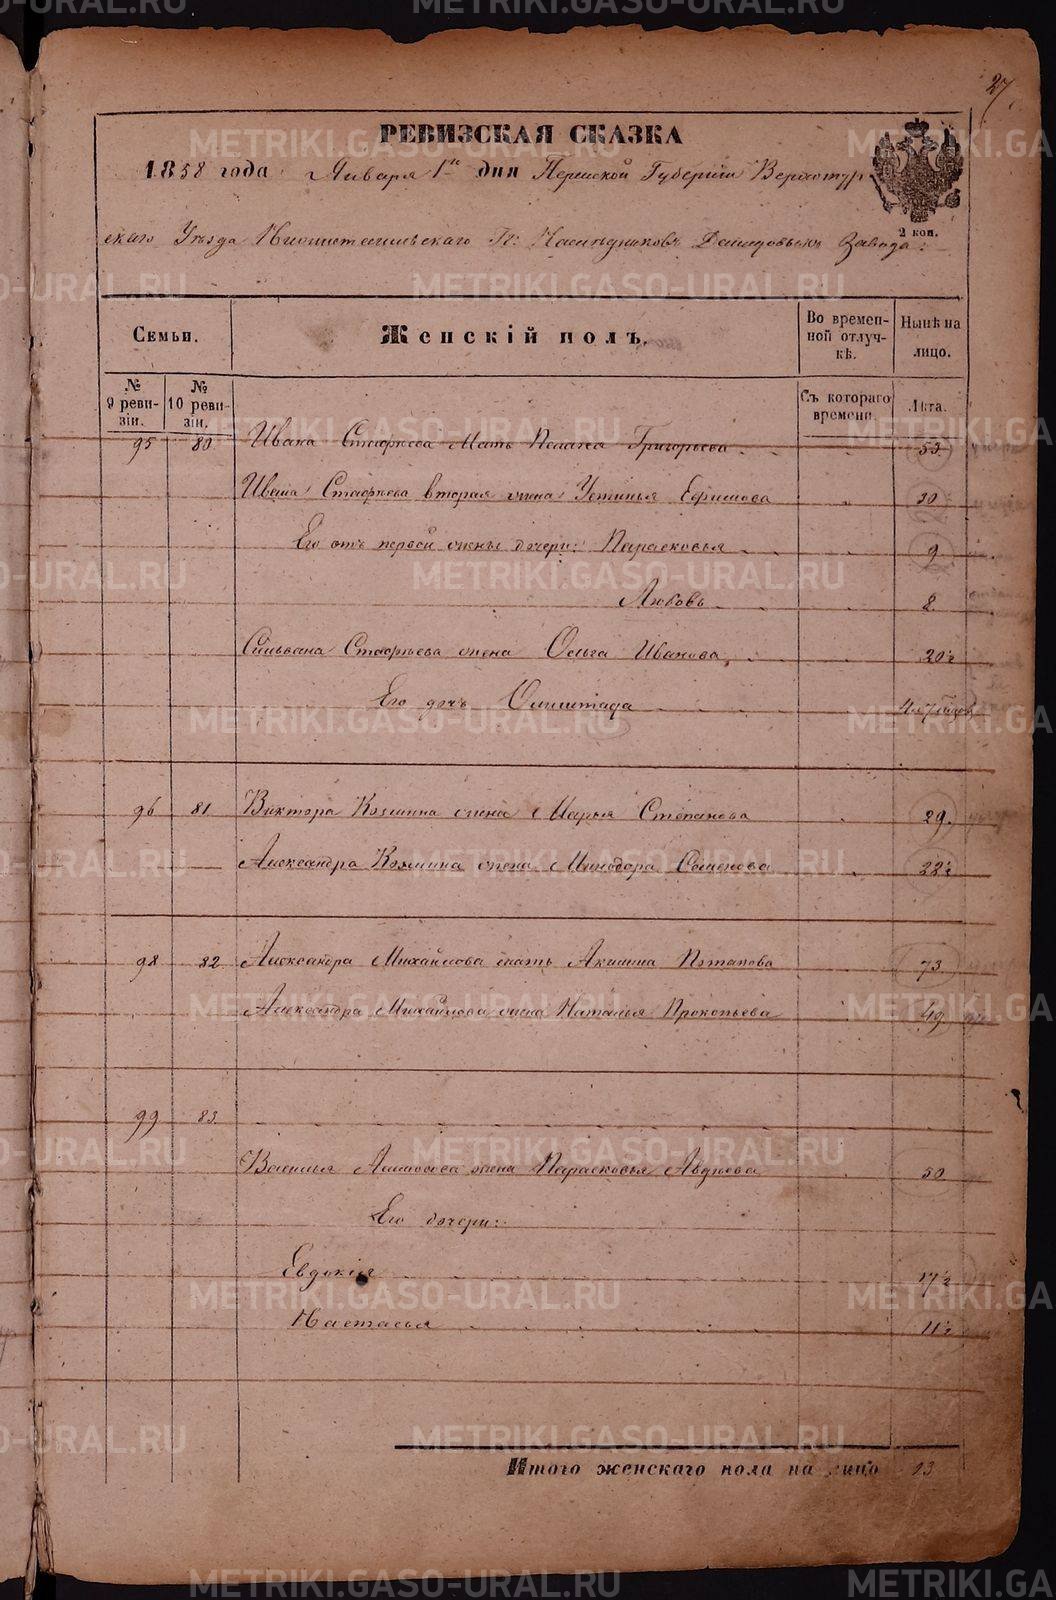 27
РЕВИЗСКАЯ СКАЗКА
1858 года Января 1го дня Пермской Губерніи Верхотур
скаго Уѣзда Нижнотагильскаго Гг: Наслѣдниковъ Демидовыхъ Завода:
2 коп.
Семьи. Женскій полъ. Во времен-ной отлуч-кѣ. Нынѣ на лицо.
№ 9 реви-зіи. № 10 реви-зіи. Съ котораго времени. Лѣта.
95 80 Ивана Стафѣева Мать Пелагея Григорьева 53.
Ивана Стафѣева вторая жена Устинья Ефимова 20
Его отъ первой жены дочери: Парасковья 9
Любовь 8
Сильвана Стафѣева жена Ольга Иванова 20½
Его дочь Олимпіада
96 81 Виктора Козмина жена Марья Степанова 29.
Александра Козмина жена Минодора Семенова 22½
98 82 Александра Михайлова мать Акилина Потапова 73
Александра Михайлова жена Наталья Прокопьева 49
99 83.
Василья жена Парасковья Авдѣева 50
Его дочери:
Евдокія 17½
Настасья 11½
Итого женскаго пола на лицо 13
METRIKI.GASO-URAL.RU